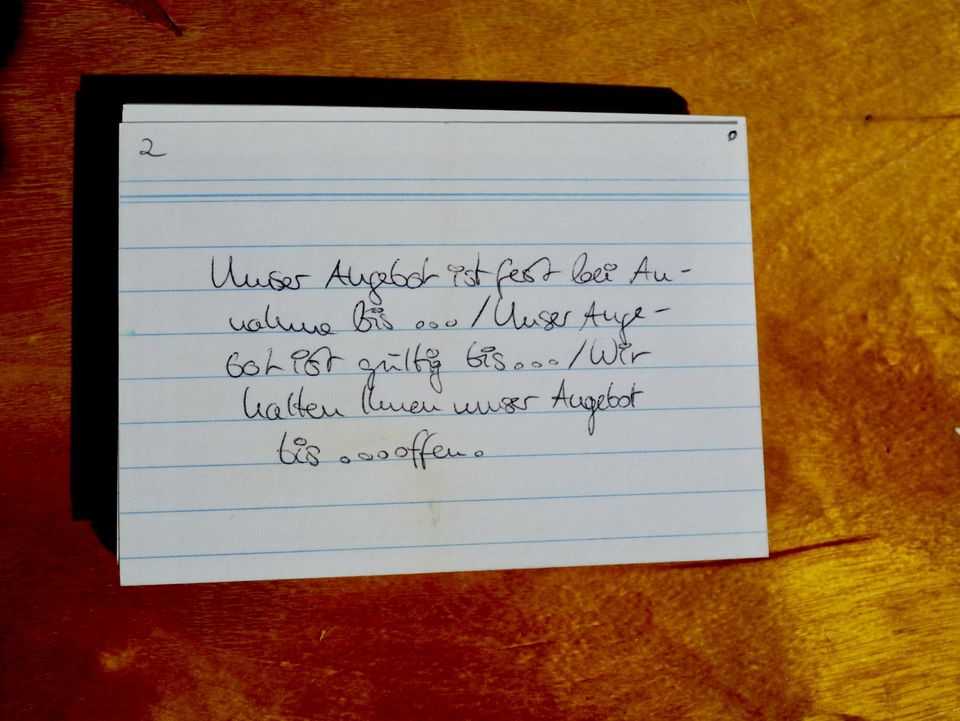 2
Unser Angebot ist fest bei An-
nahme bis ... / Unser Ange-
bot ist gültig bis ... / Wir
halten Ihnen unser Angebot
bis ... offen.